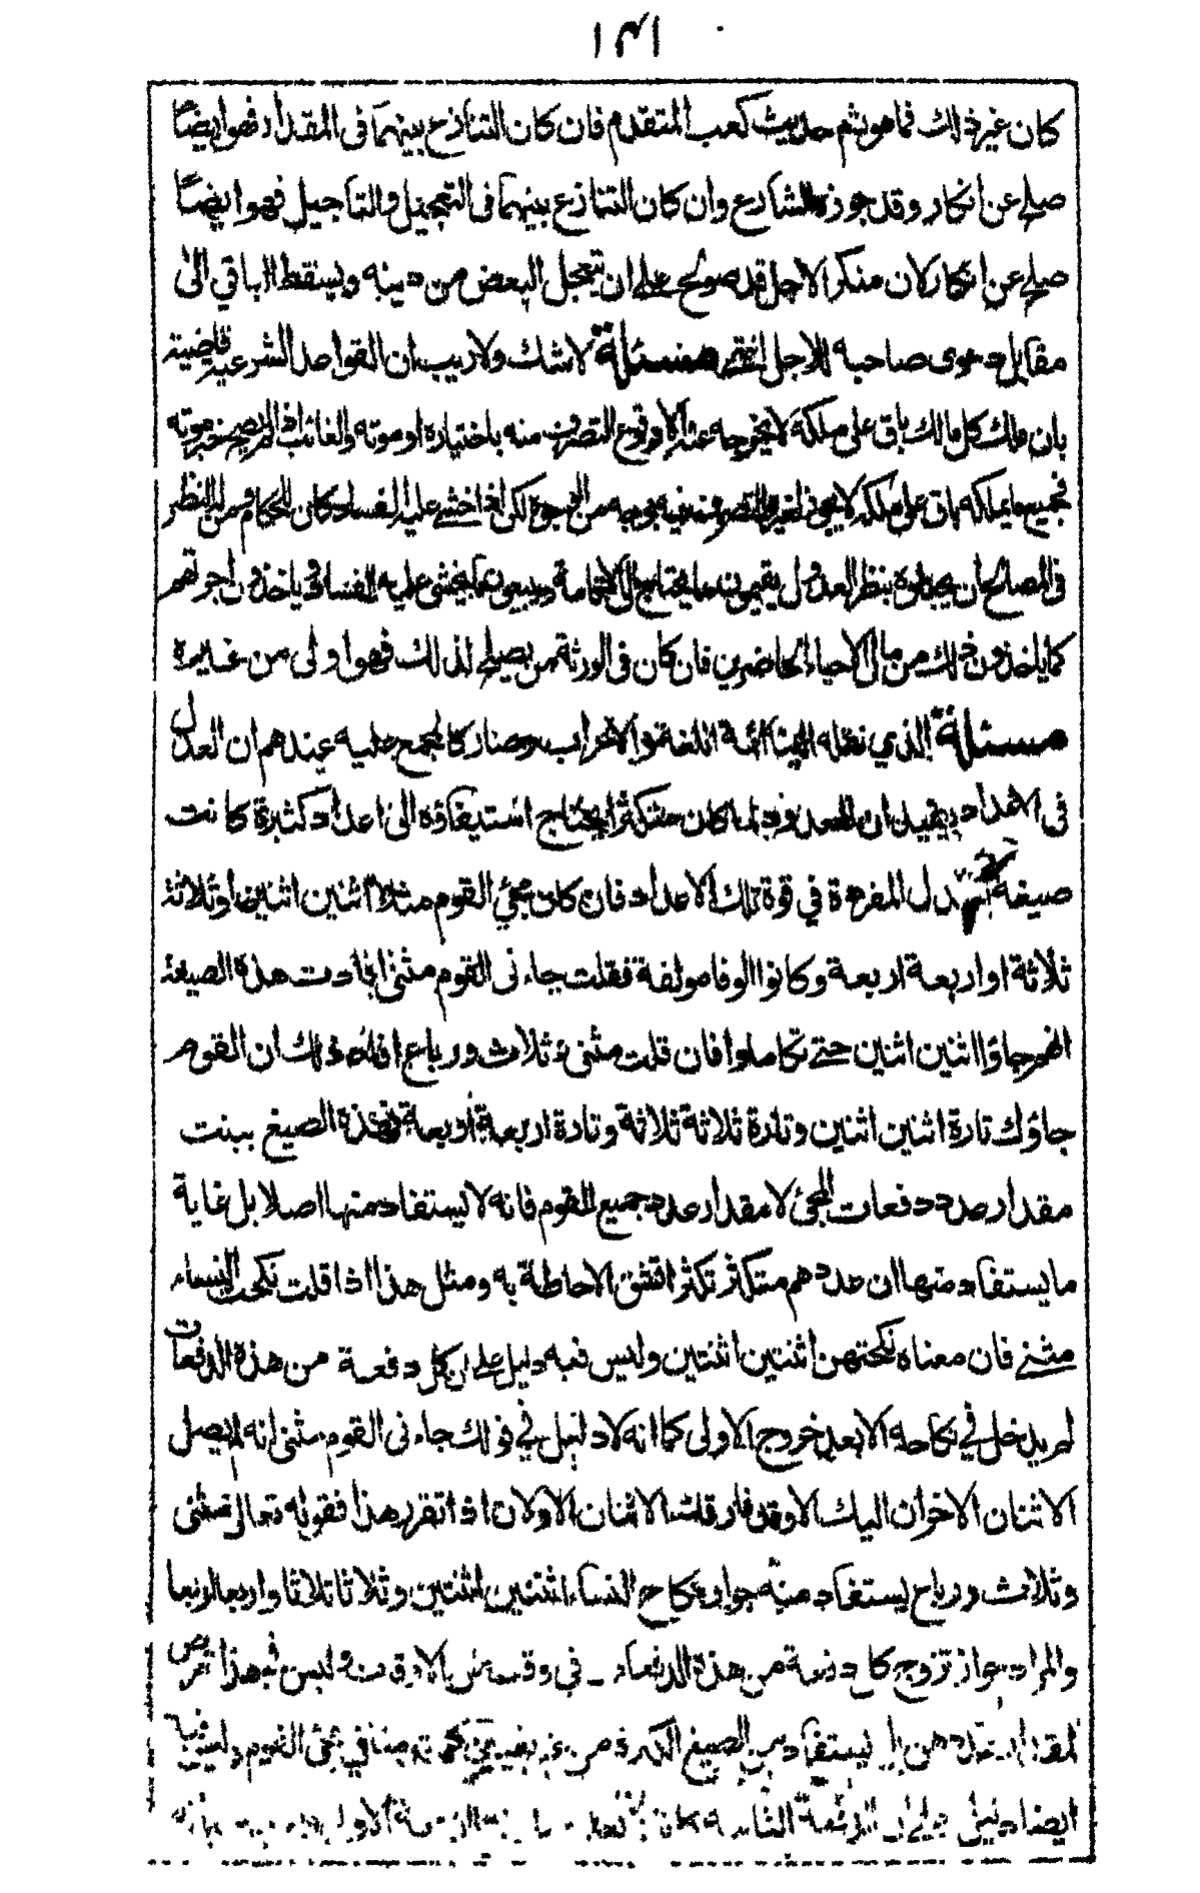 ١٣١
كان غير ذلك فما هو ثم حديث كعب المتقدم فان كان التنازع بينهما فى المقدار فهو ايضًا
صلح عن انكار وقد جوزه الشارع وان كان التنازع بينهما فى التعجيل والتاجيل فهو ايضًا
صلح عن انكار لان منكر الاجل قد صولح على ان تتعجل البعض من دينه ويسقط الباقي الى
مقابل دعوى صاحبه للاجل انتهى مسئلة لاشك ولا ريب ان القواعد الشرعية قاضية
بان ملك كل مالك باق على ملكه لا يخرجه عنه الا وقوع التصرف منه باختياره او موته والغائب اذا لم يصح خبر موته
فجميع ما يملكه باق على ملكه لا يجوز لغيره التصرف فيه بوجه من الوجوه لكن اذا خشى عليه الفساد كان للحكام ومن له النظر
فى المصالح ان يحفظوه بنظر العدول يقيمون ما يحتاج الى الاقامة ويبيعون ما يخشى عليه الفساد وياخذون اجرتهم
كما ياخذون ذلك من مال الاحياء الحاضرين فان كان فى الورثة من يصلح لذلك فهو اولى من غيره
مسئلة الذي نقله الينا ائمة اللغة والاعراب وصار كالمجمع عليه عندهم ان العدل
فى الاعداد يفيد ان المعدود لما كان متكثرا يحتاج استيفاؤه الى اعداد كثيرة كانت
صيغة العدل المفردة في قوة تلك الاعداد فان كان مجئ القوم مثلا اثنين اثنين او ثلاثة
ثلاثة او اربعة اربعة وكانوا الوفا مولفة فقلت جاءنى القوم مثنى افادت هذه الصيغة
انهم جاؤا اثنين اثنين حتى تكاملوا فان قلت مثنى وثلاث ورباع افاد ذلك ان القوم
جاؤك تارة اثنين اثنين وتارة ثلاثة ثلاثة وتارة اربعة اربعة فهذه الصيغ بينت
مقدار عدد دفعات المجئ لا مقدار عدد جميع القوم فانه لا يستفاد منها اصلا بل غاية
ما يستفاد منها ان عددهم متكثر تكثرا تشق الاحاطة به ومثل هذا اذا قلت نكحت النساء
مثنى فان معناه نكحتهن اثنتين اثنتين وليس فيه دليل على ان كل دفعة من هذه الدفعات
لم يدخل في نكاحه الا بعد خروج الاولى كما انه لا دليل في قولك جاءنى القوم مثنى انه لم يصل
الاثنان الاخران اليك الا وقد فارقك الاثنان الاولان اذا تقرر هذا فقوله تعالى مثنى
وثلاث ورباع يستفاد منه جواز نكاح النساء اثنتين اثنتين وثلاثا ثلاثا واربعا اربعا
والمراد جواز تزوج كل دفعة من هذه الدفعات في وقت من الاوقات وليس في هذا تعرض
لمقدار عددهن بل يستفاد من الصيغ الكثرة من غير تعيين كما قدمنا في مجئ القوم وليس فيه
ايضا دليل على ان الدفعة الثانية كانت بعد مفارقة الدفعة الاولى